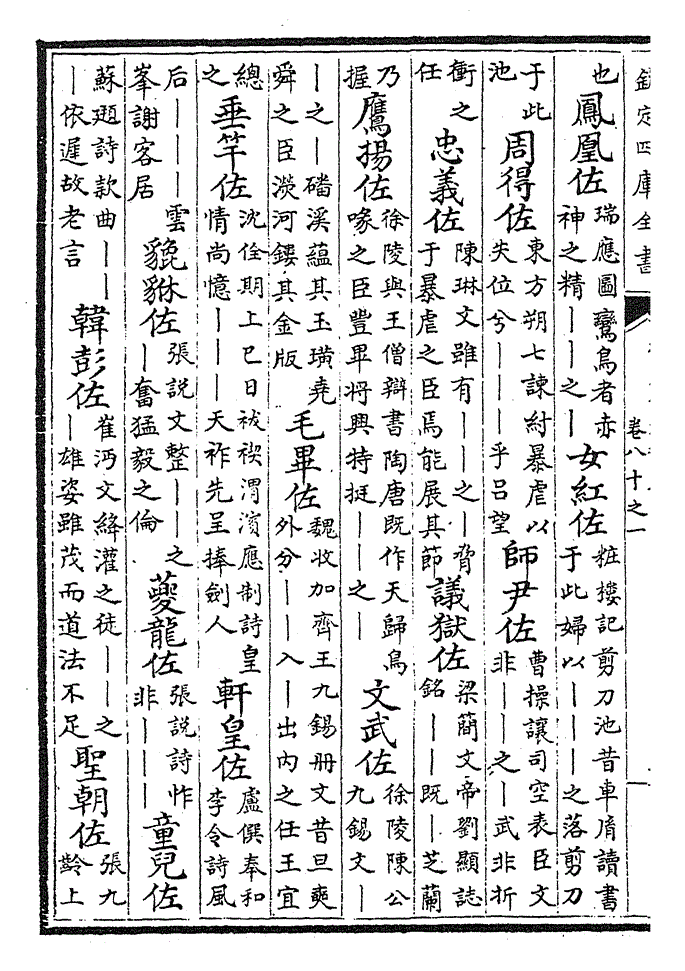 欽定四庫全書 卷八十之一
也 鳳凰佐 瑞應圖鸞鳥者赤神之精——之— 女紅佐 粧樓記剪刀池昔車胤讀書于此婦以———之落剪刀
于此池 周得佐 東方朔七諫紂暴虐以失位兮———乎呂望 師尹佐 曹操讓司空表臣文非——之—武非折
衝之任 忠義佐 陳琳文雖有——之—脅于暴虐之臣焉能展其節 議獄佐 梁簡文帝劉顯誌銘——既—芝蘭
乃握 鷹揚佐 徐陵與王僧辯書陶唐既作天歸鳥喙之臣豐畢將興特挺——之— 文武佐 徐陵陳公九錫文—
—之—磻溪蘊其玉璜堯舜之臣滎河鏤其金版 毛畢佐 魏收加齊王九錫冊文昔旦奭外分——入—出内之任王宜
總之 垂竿佐 沈佺期上巳日祓禊渭濱應制詩皇情尚憶———天祚先呈捧劍人 軒皇佐 盧僎奉和李令詩風
后———雲峯謝客居 貔貅佐 張説文整——之—奮猛毅之倫 夔龍佐 張説詩怍非——— 童兒佐
蘇頲詩款曲———依遲故老言 韓彭佐 崔沔文絳灌之徒——之—雄姿雖茂而道法不足 聖朝佐 張九齡上